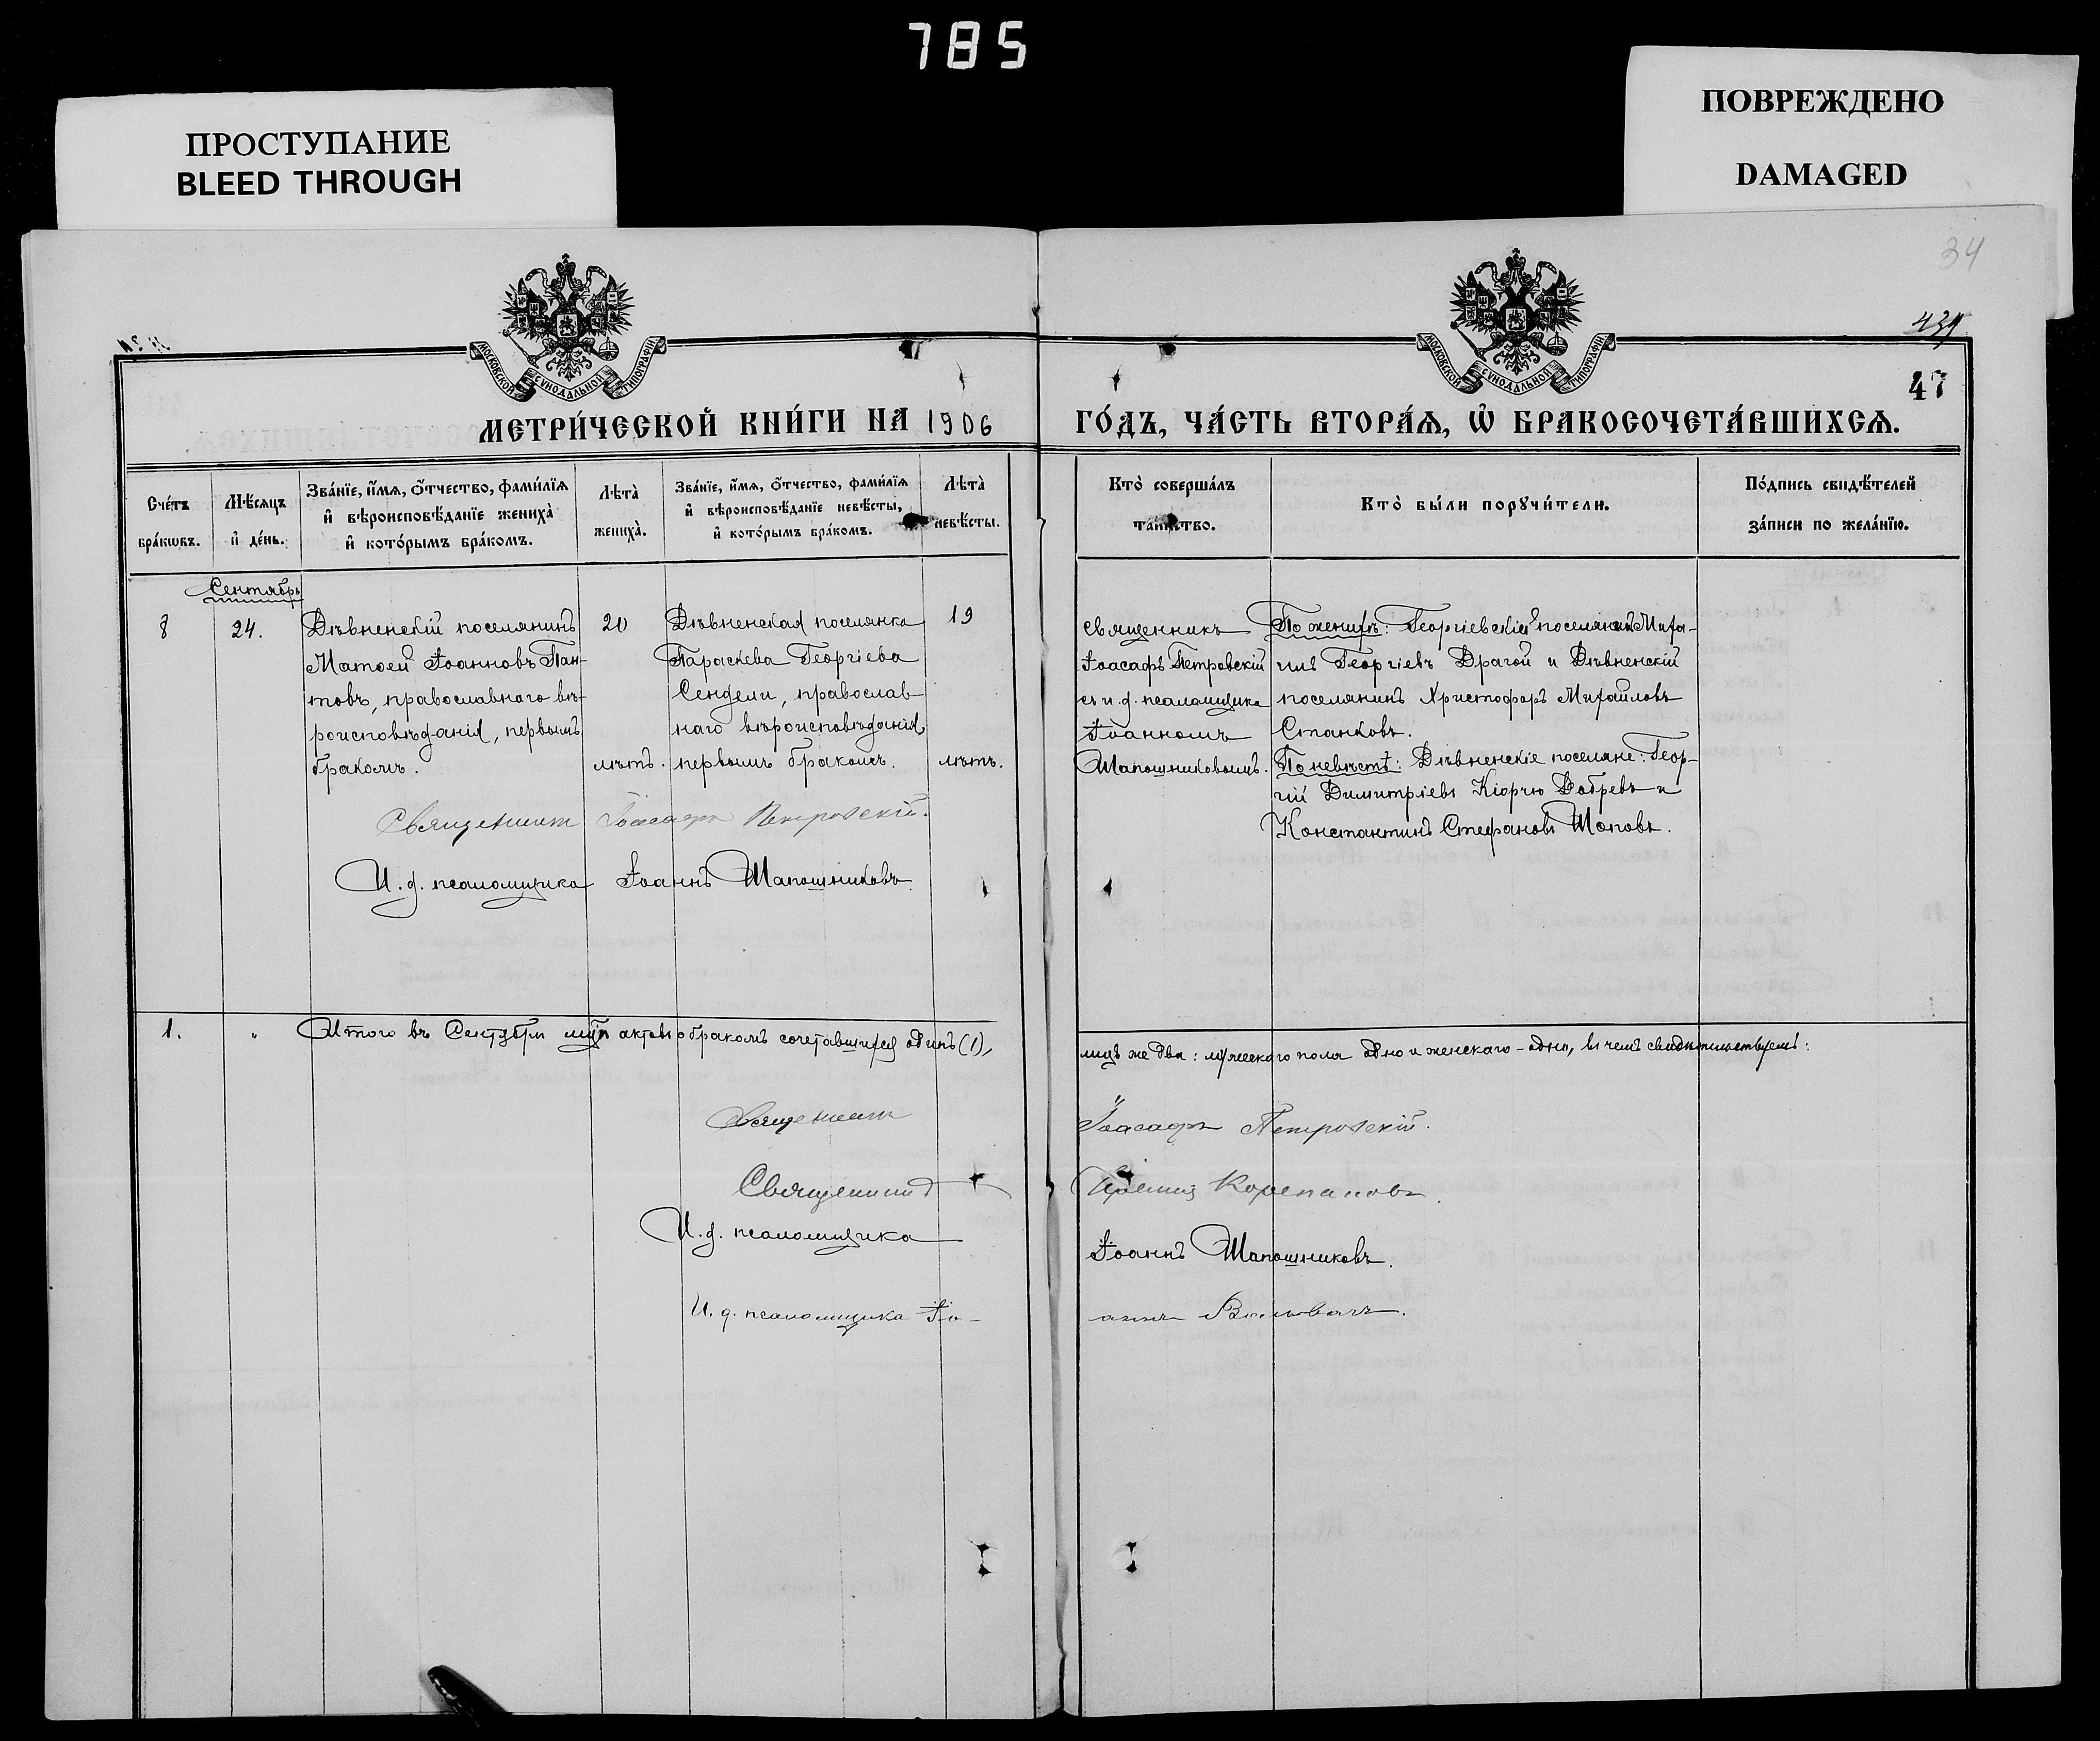 785
ПРОСТУПАНИЕ
BLEED THROUGH
ПОВРЕЖДЕНО
DAMAGED
34
МОСКОВСКОЙ СѴНОДАЛЬНОЙ ТИПОГРАФІИ
МОСКОВСКОЙ СѴНОДАЛЬНОЙ ТИПОГРАФІИ
439
47
МЕТРИ́ЧЕСКОЙ КНИ́ГИ НА 1906
ГО́ДЪ, ЧА́СТЬ ВТОРА́Ѧ, Ѡ҆ БРАКОСОЧЕТА́ВШИХСѦ.
Сче́тъ
бра́кѡвъ.
Мѣ́сѧцъ
и҆ де́нь.
Зва́нїе, и҆́мѧ, ѻ҆́тчество, фами́лїѧ
и҆ вѣроисповѣ́данїе жениха̀
и҆ кото́рымъ бра́комъ.
Лѣта̀
жениха̀.
Зва́нїе, и҆́мѧ, ѻ҆́тчество, фами́лїѧ
и҆ вѣроисповѣ́данїе невѣ́сты,
и҆ кото́рымъ бра́комъ.
Лѣта̀
невѣ́сты.
Кто̀ соверша́лъ
та́инство.
Кто̀ бы́ли порꙋчи́тели.
По́дпись свидѣ́телей
за́писи по жела́нїю.
Сентябрь
8
24.
Дѣвненскій поселянинъ
Матѳей Іоанновъ Пан-
товъ, православнаго вѣ-
роисповѣданія, первымъ
бракомъ.
20
лѣтъ.
Дѣвненская поселянка
Параскева Георгіева
Сендели, православ-
наго вѣроисповѣданія,
первымъ бракомъ.
19
лѣтъ.
священникъ
Іоасафъ Петровскій
съ и.д. псаломщика
Іоанномъ
Шапошниковымъ.
По женихѣ: Георгіевскій поселянинъ Миха-
илъ Георгіевъ Драгой и Дѣвненскій
поселянинъ Христофоръ Михайловъ
Станковъ.
По невѣстѣ: Дѣвненскіе поселяне: Геор-
гій Димитріевъ Кіорчю Добревъ и
Константинъ Стефановъ Шоповъ.
Священникъ Іоасафъ Петровскій.
И.д. псаломщика Іоаннъ Шапошниковъ.
1. " Итого въ Сентябри мцѣ актовъ о бракомъ сочетавшихся одинъ (1),
лицъ же два: мужескаго пола одно и женскаго - одно, въ чемъ свидѣтельствуемъ:
Священникъ Іоасафъ Петровскій.
Священникъ
И.д. псаломщика Іоаннъ Шапошниковъ.
И.д. псаломщика Іо-
аннъ